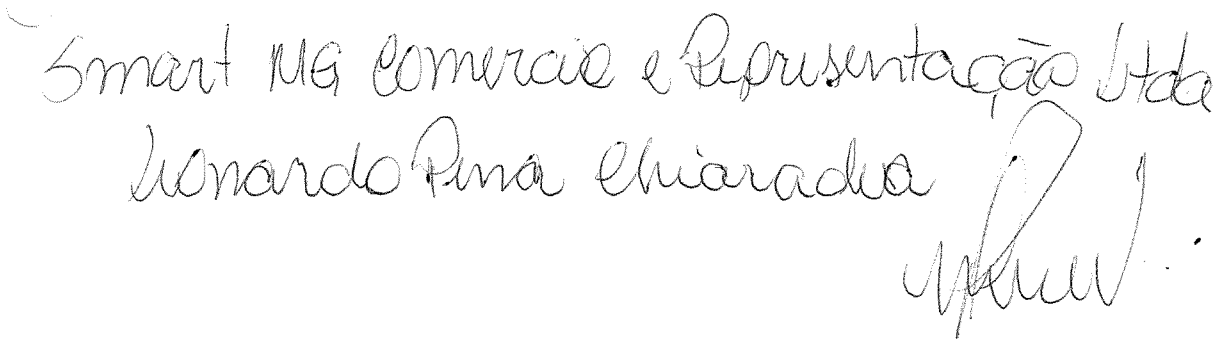 Smart MG Comercio e Representação Ltda
Leonardo Pena Chiaradia